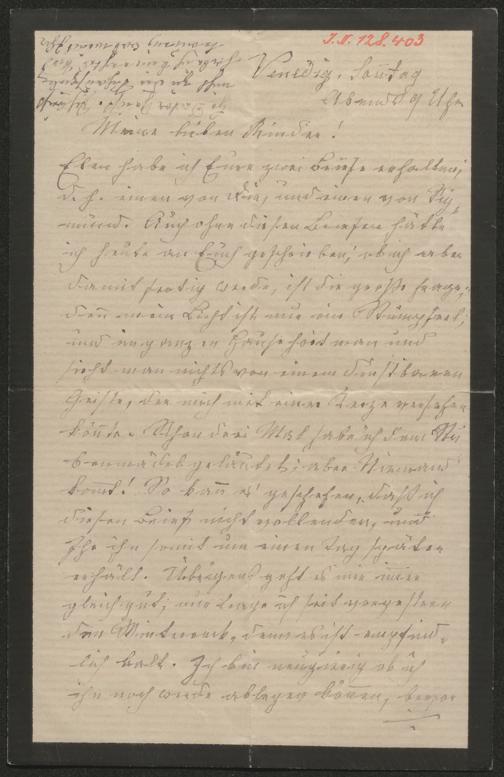 I.N. 128.403
Venedig, Sonntag
Abends 9 Uhr
Meine lieben Kinder!
Eben habe ich Eure zwei Briefe erhalten;
d. h. einen von und einen von
mund. Auch ohne diesen Briefen hätte
ich heute an Euch geschrieben; ob ich aber
damit fertig werde, ist die große Frage,
den̄ mein Licht ist nur ein Stümpferl,
und im ganzen Hause hört man und
sieht man nichts von einem dienstbaren
Geiste, der mich mit einer Kerze versehen
kön̄te. Schon drei Mal habe ich dem Stu-
benmädel geläutet; aber Niemand
kom̄t! So kan̄ es geschehen, daß ich
diesen Brief nicht vollenden, und
Ihr ihn somit um einen Tag später
erhält. Übrigens geht es mir im̄er
gleich gut; nur trage ich seit vorgestern
den Winterrock, denn es ist empfind-
lich kalt. Ich bin neugierig ob ich
ihn noch werde ablegen kön̄en, bevor